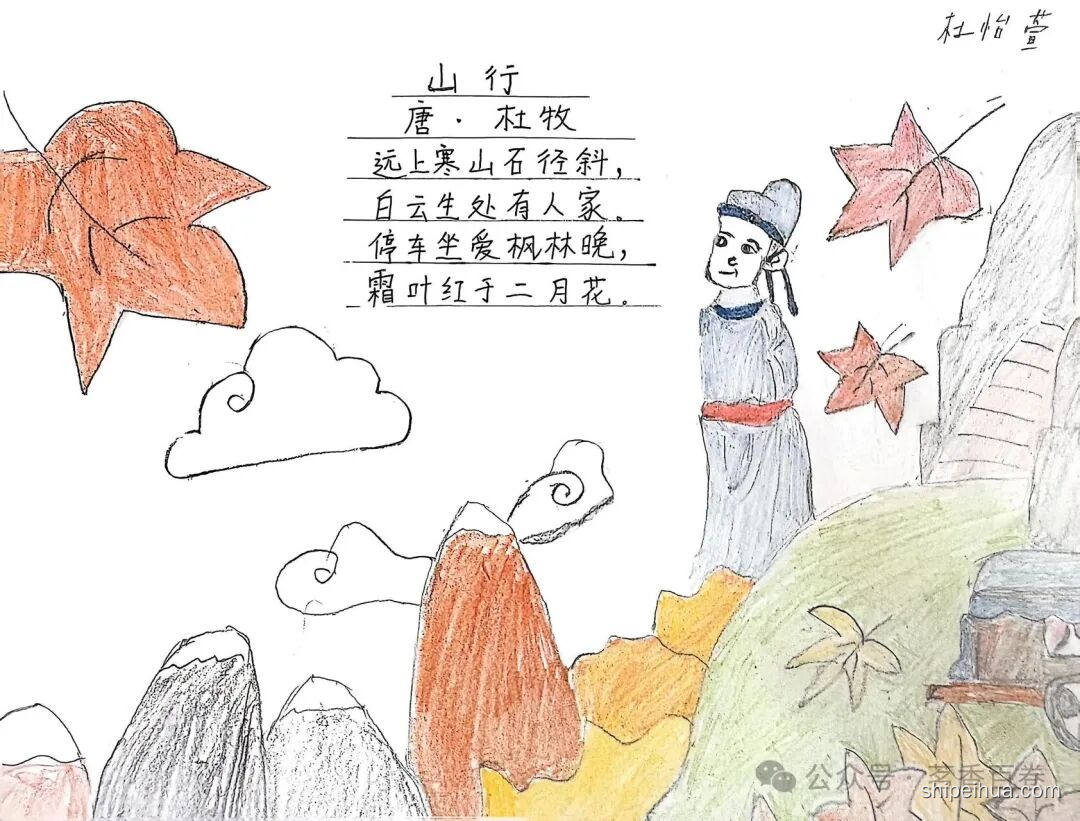 杜怡萱
山行
唐·杜牧
远上寒山石径斜，
白云生处有人家。
停车坐爱枫林晚，
霜叶红于二月花。
公众号·茗香百卷
shipeihua.com